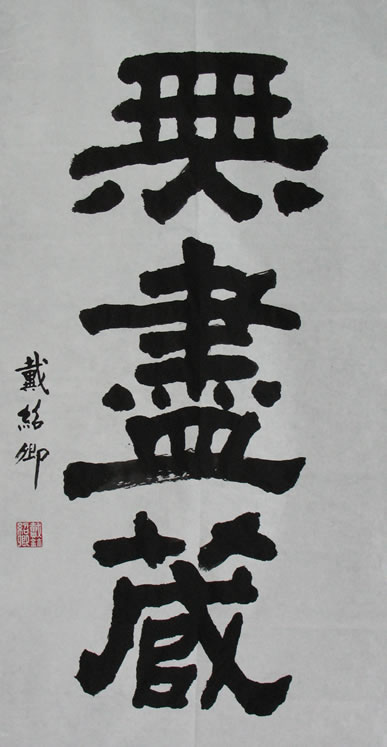 無盡蔵
戴紹卿